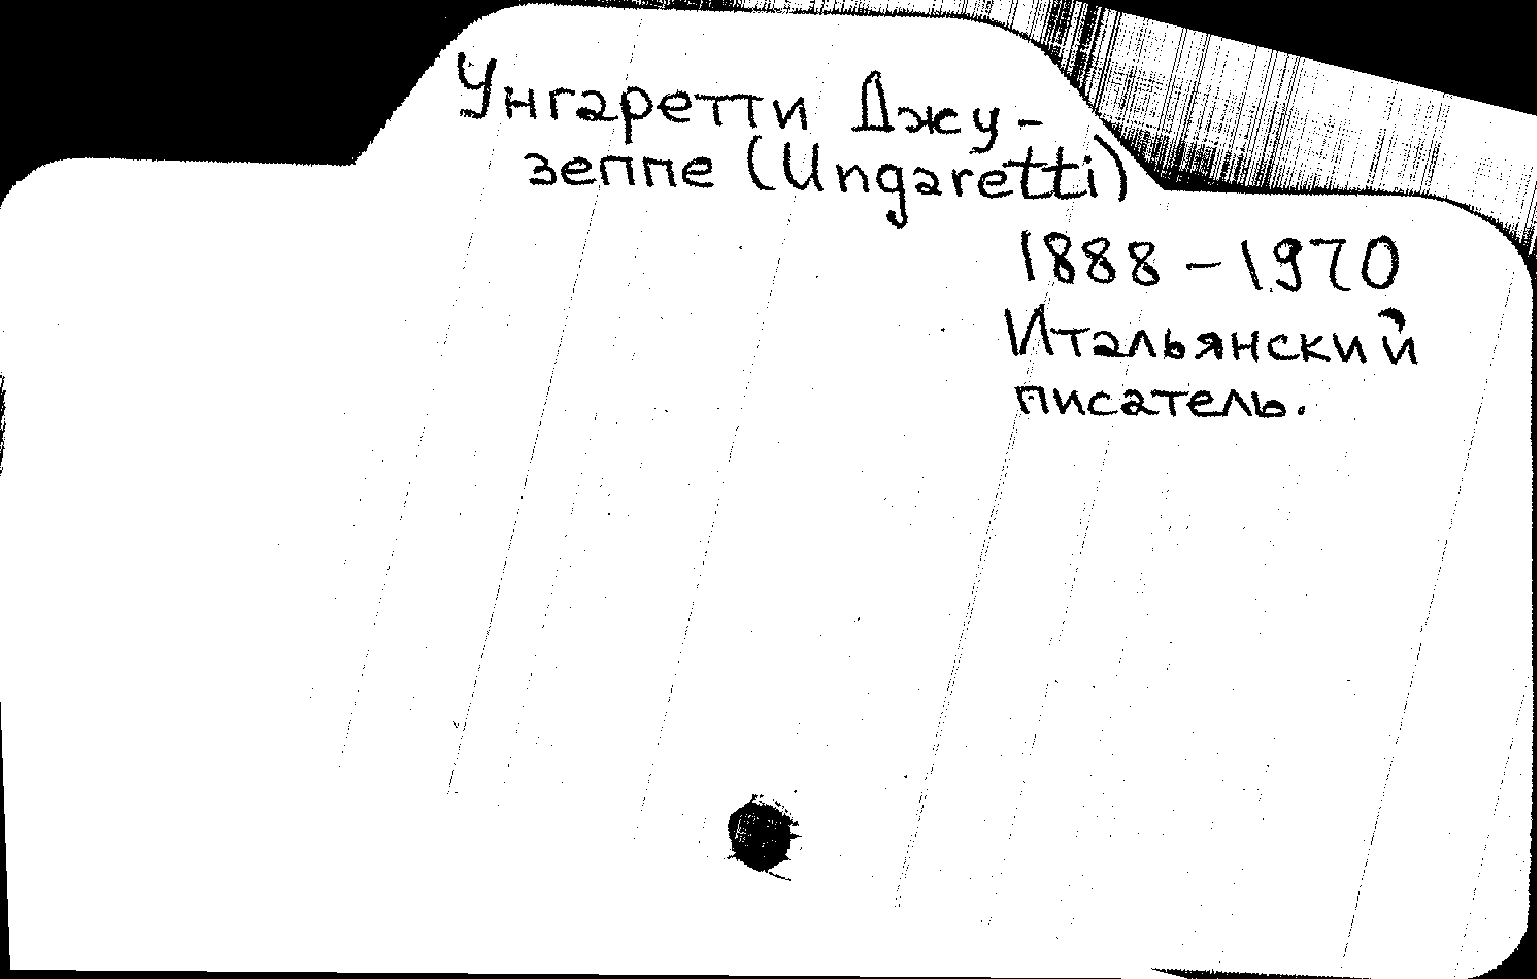 Унгаретти Джу-
зеппе (Ungaretti)
1888-1970
Итальянский
писатель.